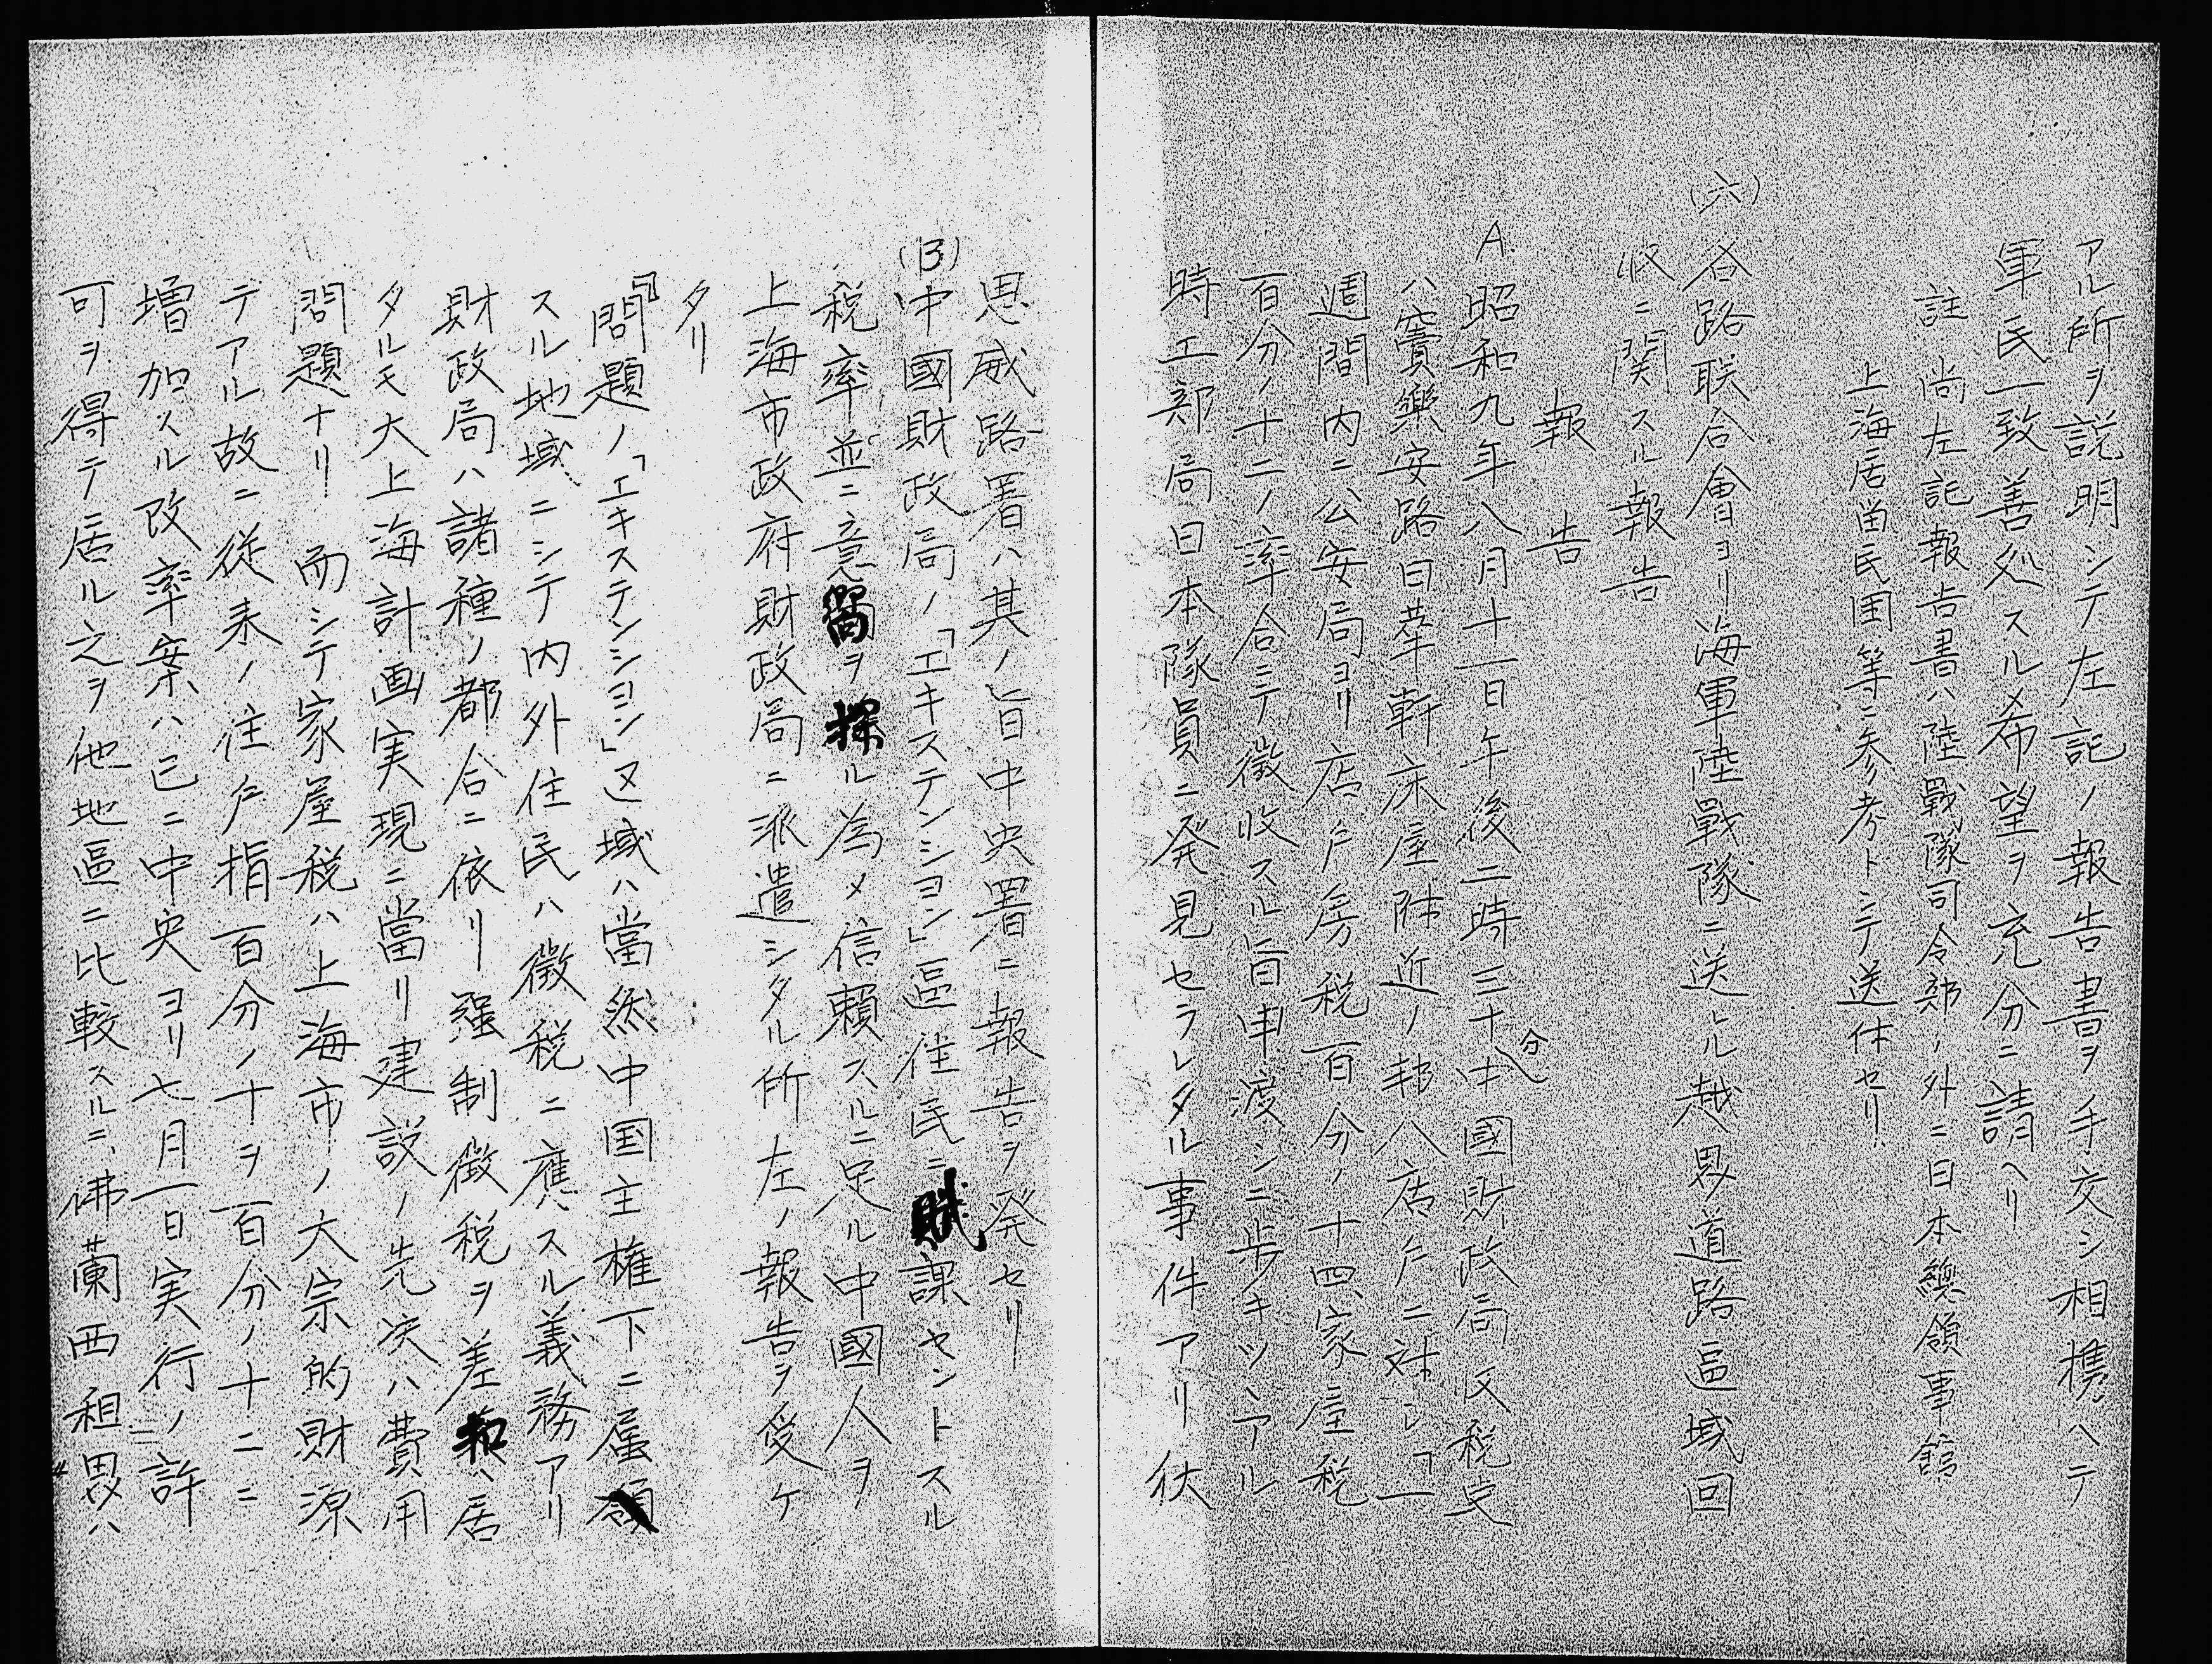 アル所ヲ説明シテ左記ノ報告書ヲ手交シ相携ヘテ
軍民一致善処スル希望ヲ充分ニ請ヘリ
註尚左記報告書ハ陸戰隊司令部ノ外ニ日本總領事館
上海居留民団等ニ参考トシテ送付セリ.
(六)各路联合會ヨリ海軍陸戰隊ニ送レル越界道路區域回
收ニ関スル報告
報告
A.昭和九年八月十一日午後二時三十分中國財政局収税吏
ハ竇樂安路日華軒床屋附近ノ邦人店戸ニ対シ「一
週間内ニ公安局ヨリ店戸房税百分ノ十四家屋税
百分ノ十二ノ率合シテ徴收スル旨申渡シニ歩キツヽアル
時工部局日本隊員ニ発見セラレタル事件アリ狄
思威路署ハ其ノ旨中央署ニ報告ヲ発セリ
(B)中國財政局ノ「エキステンシヨン」區住民ニ賦課セントスル
税率並ニ意嚮ヲ探ル為メ信頼スルニ足ル中國人ヲ
上海市政府財政局ニ派遣シタル所左ノ報告ヲ受ケ
タリ
『問題ノ「エキステンシヨン」区域ハ當然中国主権下ニ属領
スル地域ニシテ内外住民ハ徴税ニ應スル義務アリ
財政局ハ諸種ノ都合ニ依リ强制徴税ヲ差和ヘ居
タルモ大上海計画実現ニ當リ建設ノ先決ハ費用
問題ナリ 而シテ家屋税ハ上海市ノ大宗的財源
テアル故ニ従来ノ住戸捐百分ノ十ヲ百分ノ十二ニ
増加スル改率案ハ已ニ中央ヨリ七月一日実行ノ許
可ヲ得テ居ル之ヲ他地區ニ比較スルニ、佛蘭西租界ハ